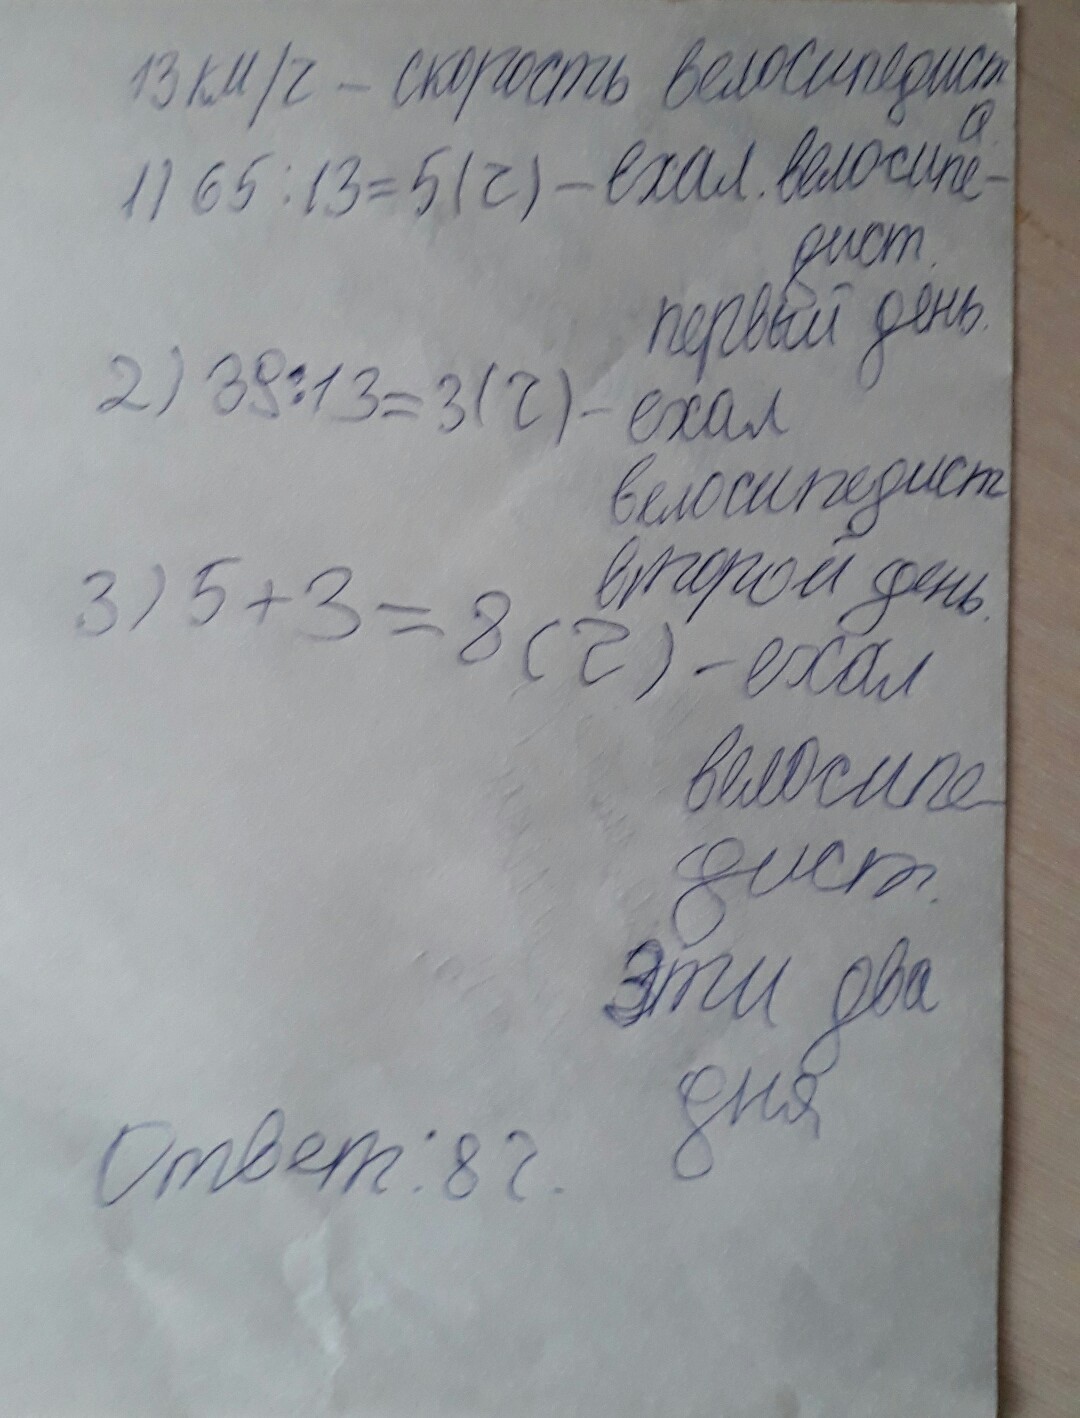 13 км/ч – скорость велосипедист
а.
1) 65:13=5(ч) – ехал. велосипе-
дист.
первый день.
2) 39:13=3(ч) – ехал
велосипедист
второй день.
3) 5+3=8(ч) – ехал
велосипе-
дист.
эти два
дня
Ответ: 8ч.